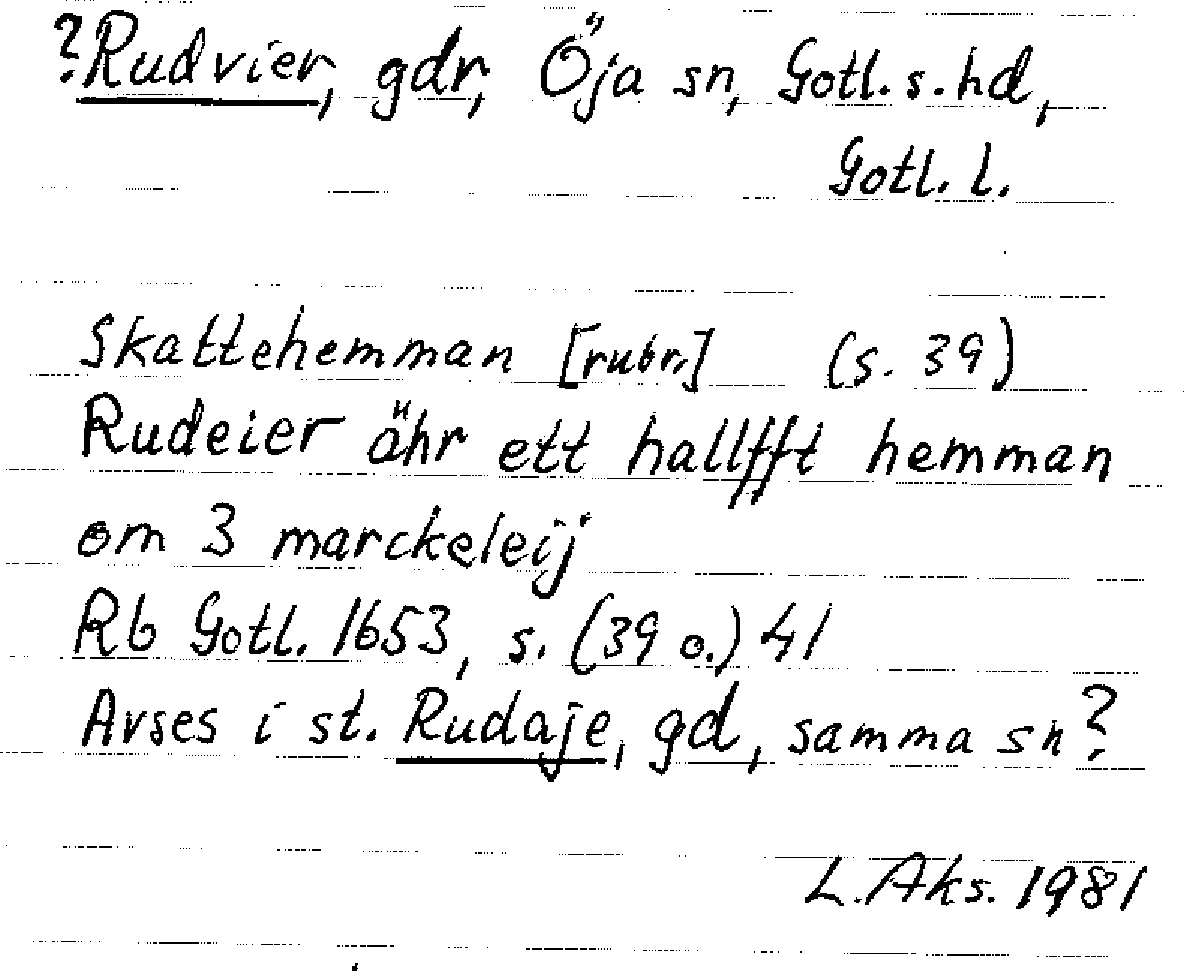 ?Rudvier, gdr, Öja sn, Gotl. s. hd,
Gotl. l.
Skattehemman [rubr.] (s. 39)
Rudeier ähr ett hallfft hemman
om 3 marckeleij
Rb Gotl. 1653, s. (39 o.) 41
Avses i st. Rudaje, gd, samma sn?
L. Aks. 1981